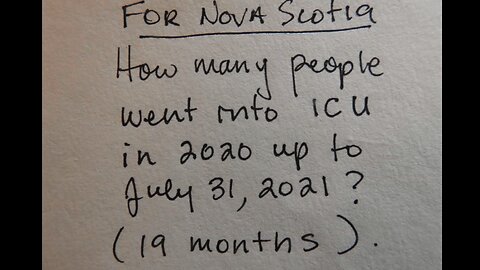 FOR NOVA SCOTIA
How many people
went into ICU
in 2020 up to
July 31, 2021?
(19 months).